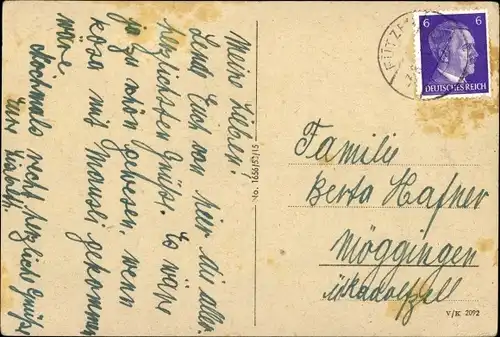 Meine Lieben!
Send Euch von hier di aller
herzlichsten Grüße. Es wäre
ja zu schön gewesen, wenn
kosa mit Mausi gekommen
wäre
Nochmals recht herzlich Grüßt
Eure
No. 1656/52/15
6 6
DEUTSCHES REICH
Familie
Berta Hafner
Möggingen
ü/Radolfzell
V/K 2092